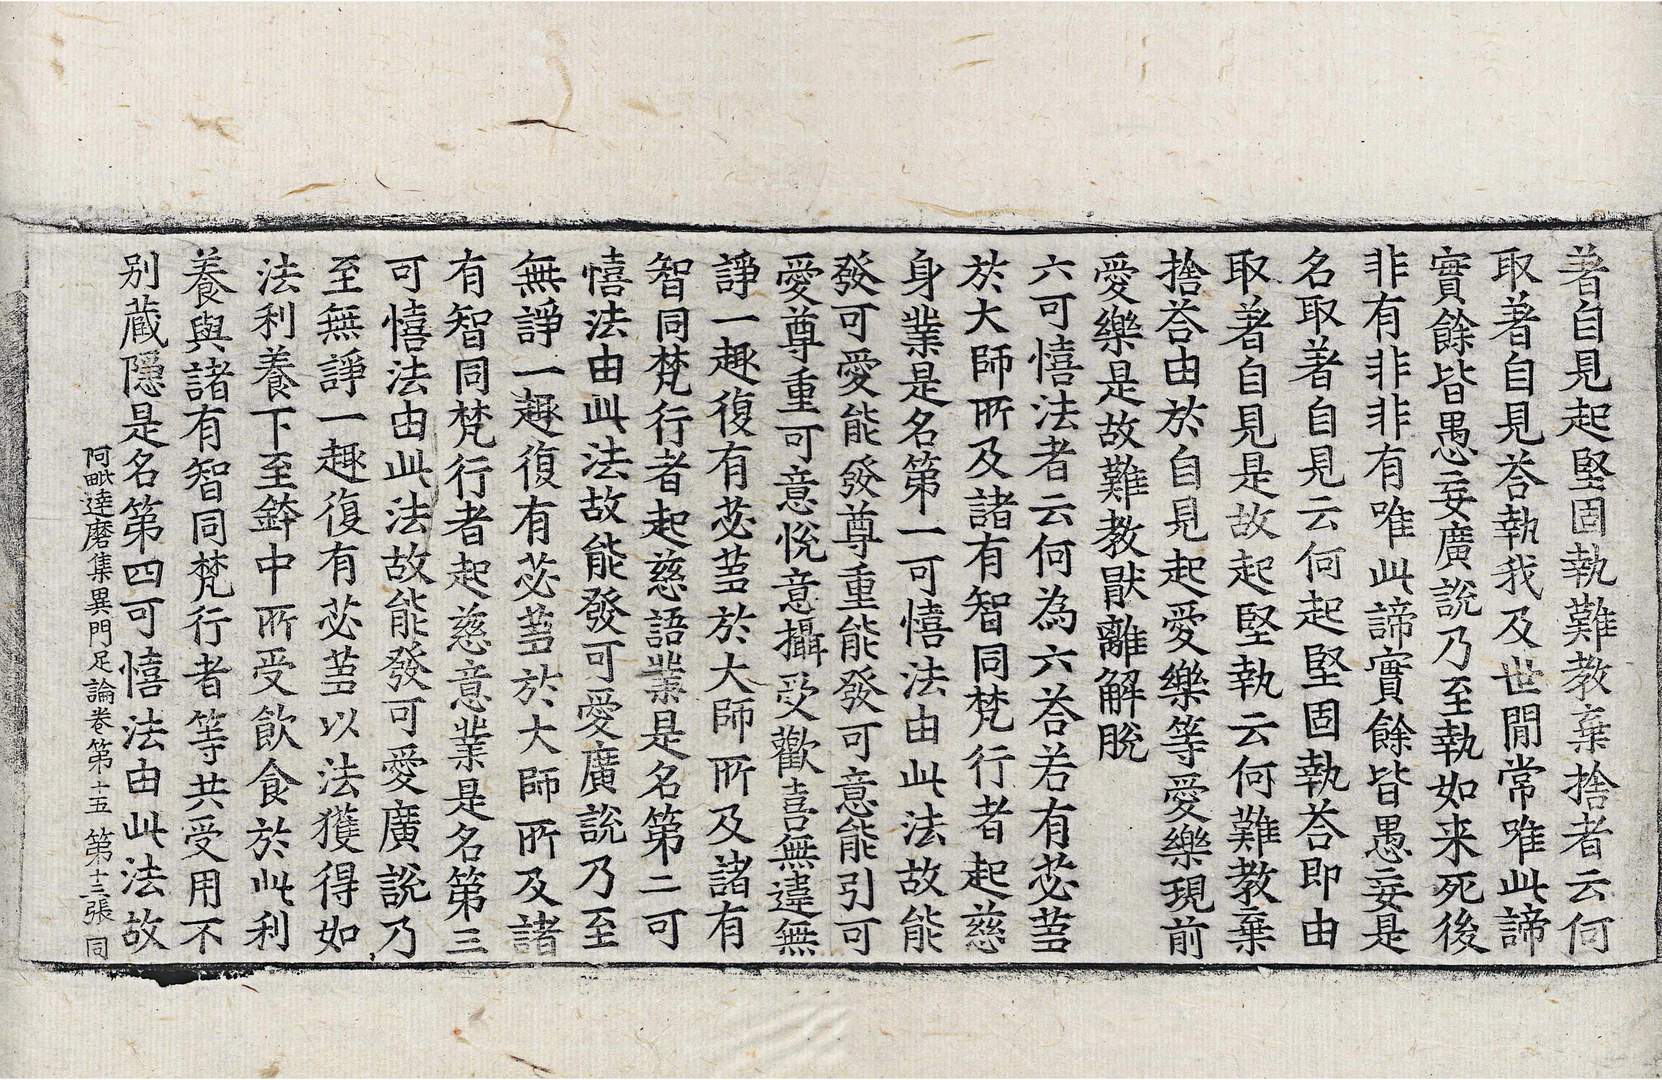 著自見起堅固執難教棄捨者云何
取著自見荅執我及世閒常唯此諦
實餘皆愚妄廣說乃至執如来死後
非有非非有唯此諦實餘皆愚妄是
名取著自見云何起堅固執荅即由
取著自見是故起堅執云何難教棄
捨荅由於自見起愛樂等愛樂現前
愛樂是故難教猒離解脫
六可憘法者云何為六荅若有苾蒭
於大師所及諸有智同梵行者起慈
身業是名第一可憘法由此法故能
發可愛能發尊重能發可意能引可
愛尊重可意悅意攝受歡喜無違無
諍一趣復有苾蒭於大師所及諸有
智同梵行者起慈語業是名第二可
憘法由此法故能發可愛廣說乃至
無諍一趣復有苾蒭於大師所及諸
有智同梵行者起慈意業是名第三
可憘法由此法故能發可愛廣說乃
至無諍一趣復有苾蒭以法獲得如
法利養下至鉢中所受飲食於此利
養與諸有智同梵行者等共受用不
別藏隱是名第四可憘法由此法故
阿毗達磨集異門足論卷第十五 第十三張 同